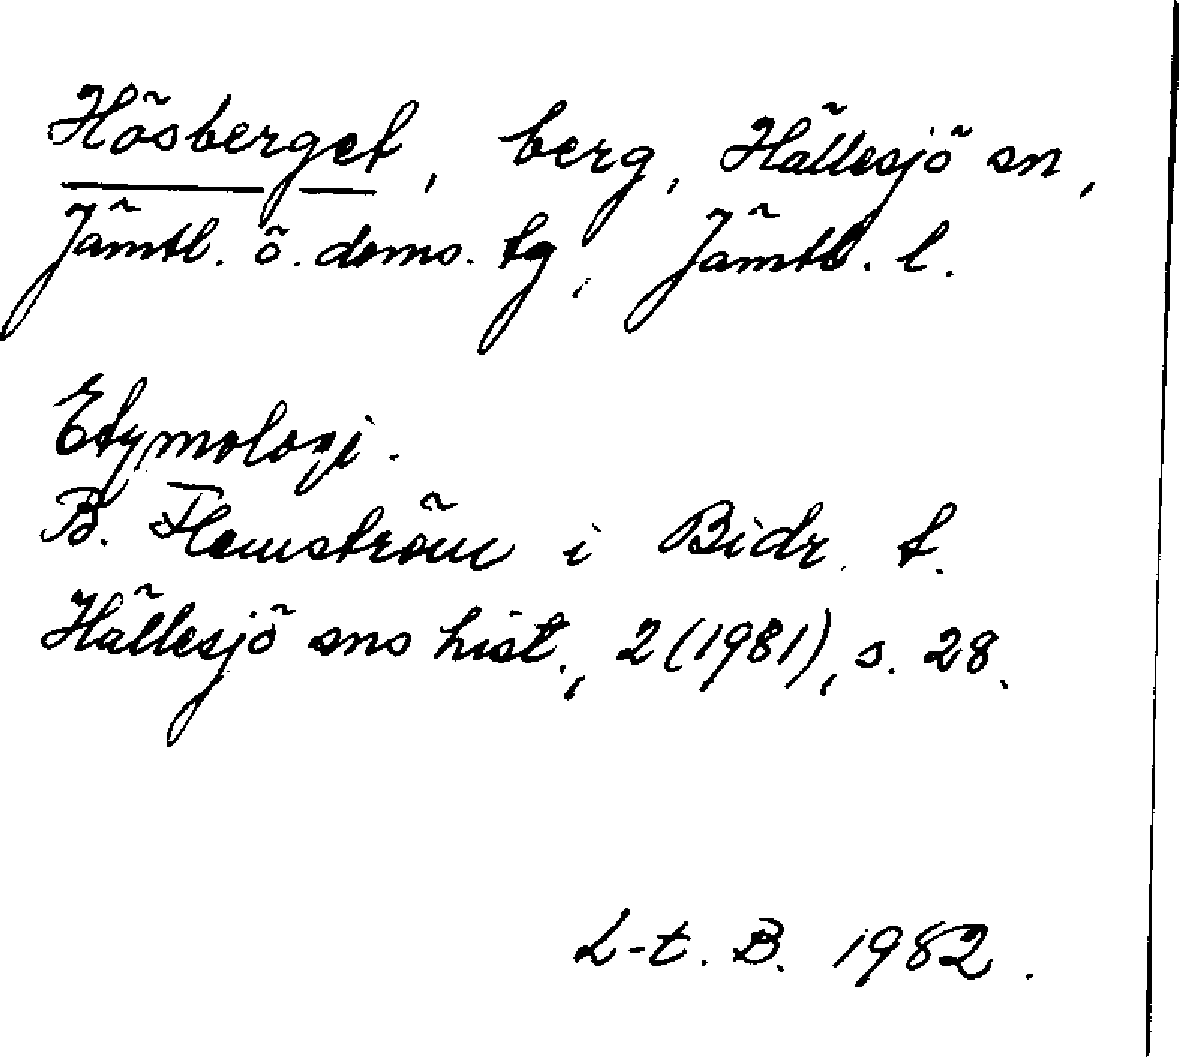 Hösberget, berg, Hällesjö sn,
Jämtl. ö. doms. tg, Jämtl. l.
Etymologi.
B. Flemström i Bidr. t.
Hällesjö sns hist., 2 (1981), s. 28.
L-t. B. 1982.